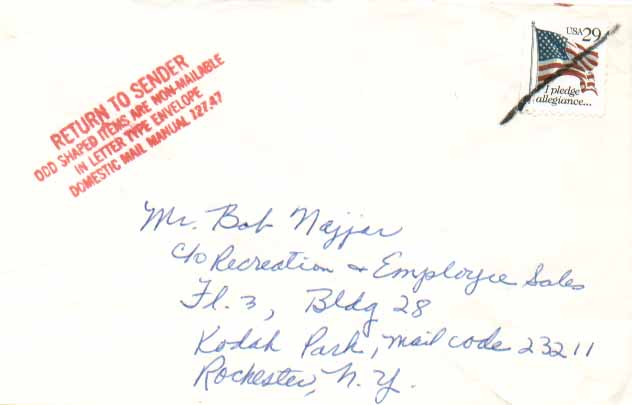 USA 29
I pledge
allegiance...
RETURN TO SENDER
ODD SHAPED ITEMS ARE NON-MAILABLE
IN LETTER TYPE ENVELOPE
DOMESTIC MAIL MANUAL 127.47
Mr. Bob Najjar
c/o Recreation & Employee Sales
Fl. 3, Bldg 28
Kodak Park, mail code 23211
Rochester, N.Y.